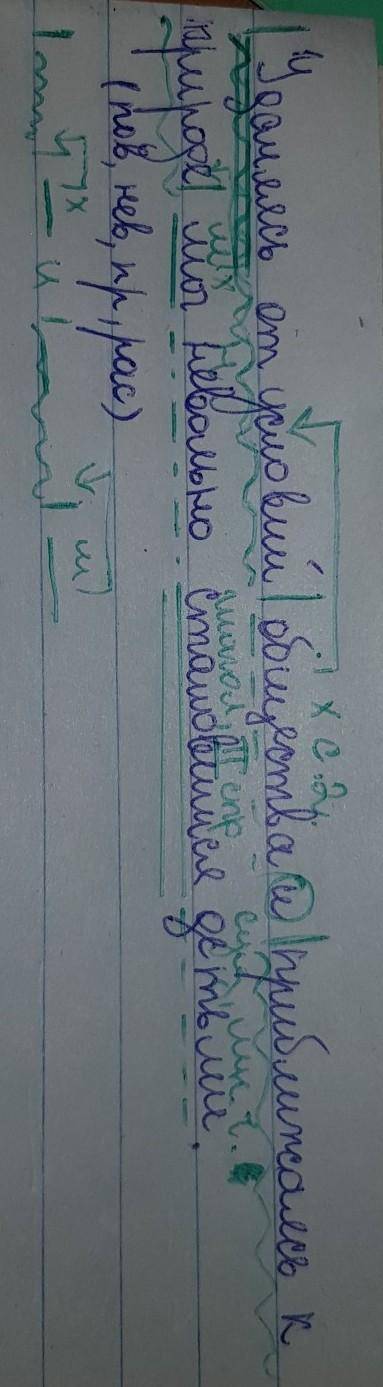 Удаляясь от условий общества и приближаясь к
природе, мы невольно становимся детьми.
(пов, нев, пр, рас)